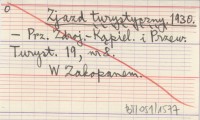 O
Zjazd turystyczny, 1930.
– Prz. Zdroj.-Kąpiel. i Przew.
Turyst. 19, nr 8.
W Zakopanem.
BJ1051/1577